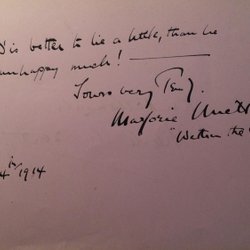 is better to lie a little, than be
unhappy much! —
Yours very
Marjorie
"Within the
1914